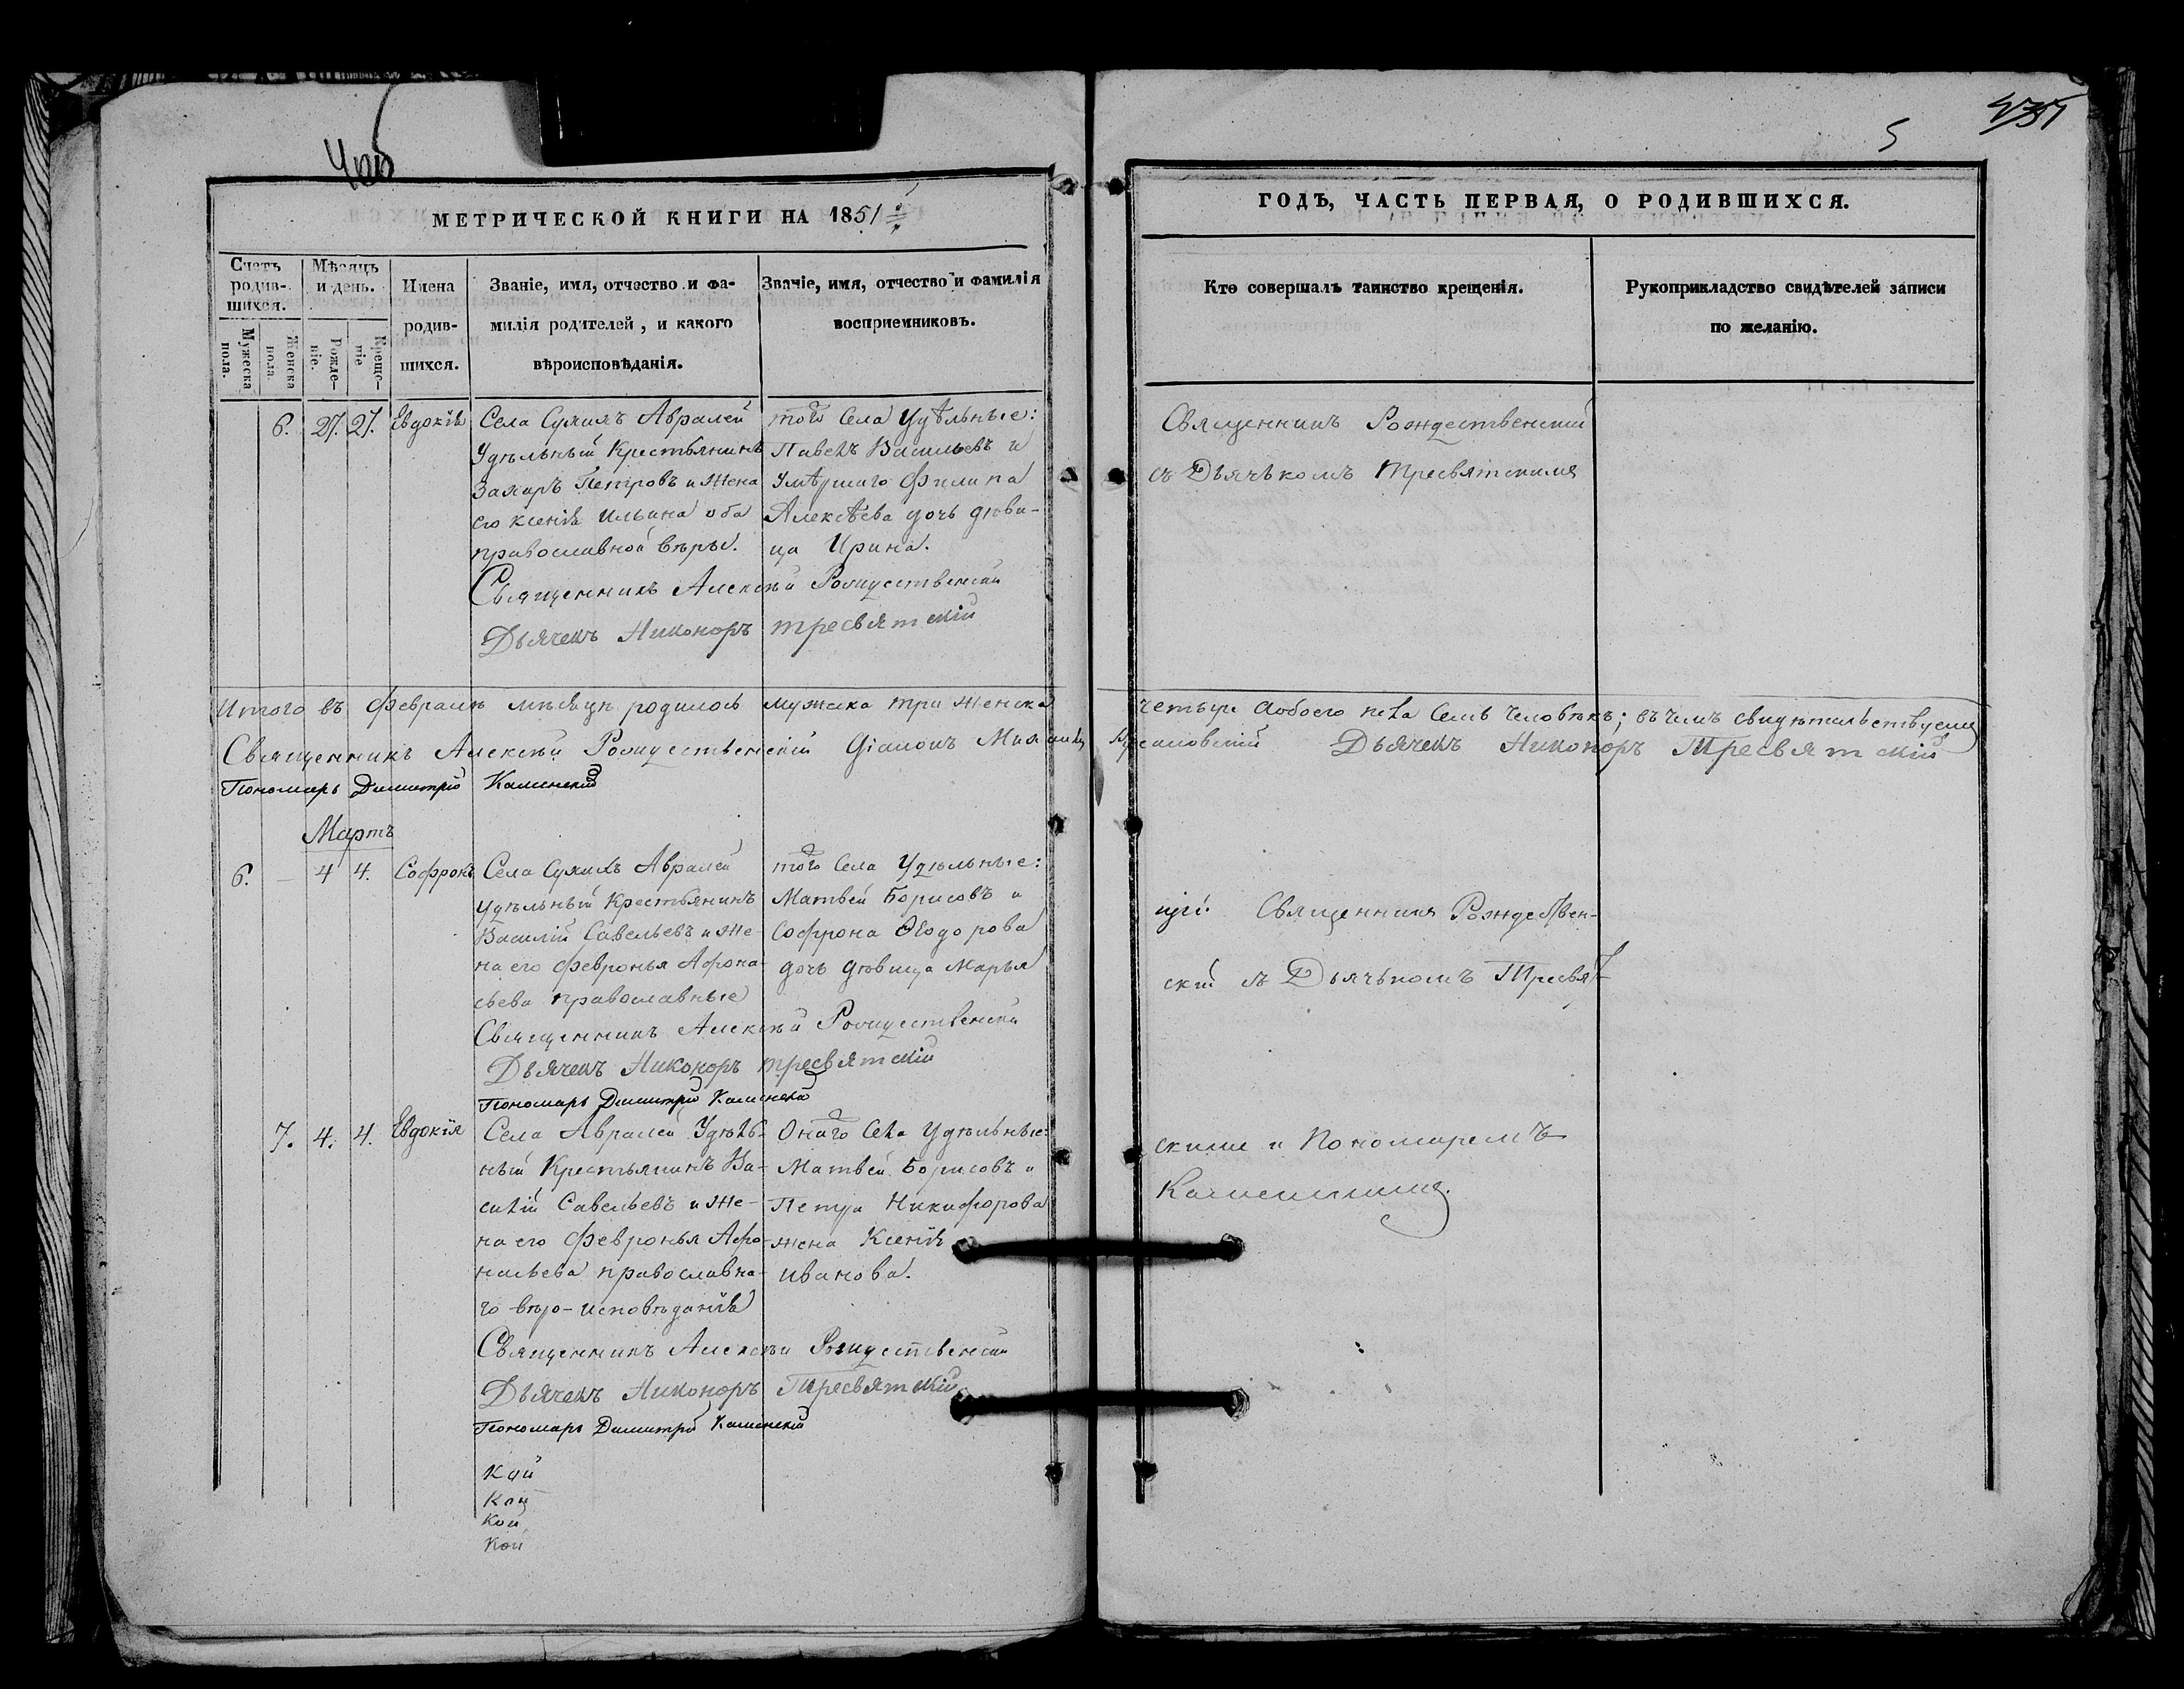 5
МЕТРИЧЕСКОЙ КНИГИ НА 1851
Счетъ родив-шихся.
Мѣсяцъ и день.
Имена родив-шихся.
Званіе, имя, отчество и фа-
милія родителей, и какого
вѣроисповѣданія.
Званіе, имя, отчество и фамилія
воспріемниковъ.
Мужеска пола.
Женска пола.
Рожде-ніе.
Креще-ніе
6. 27. 27. Евдокія
Села Сухихъ Авралей
Удѣльный Крестьянинъ
Захаръ Петровъ и Жена
его Ксенія Ильина оба
православной вѣры.
того Села Удѣльные:
Павелъ Васильевъ и
Умѣршаго Филипа
Алексѣева дочь дѣви-
ца Ирина.
Священникъ Алексѣй Рождественскій
Дьячекъ Никоноръ Тресвятскій
Итого въ Февралѣ мѣсяцѣ родилось мужска три Женска
Священникъ Алексѣй Рождественскій Діаконъ
Пономарь Димитрій Каминскій
Мартъ
6. – 4 4. Софронъ
Села Сухихъ Авралей
Удѣльный Крестьянинъ
Василій Савельевъ и Же-
на его Февронья Афона-
сьева православные
того Села Удѣльные:
Матвей Борисовъ и
Софрона Ѳеодорова
дочь дѣвица Марья
Священникъ Алексѣй Рождественскій
Дьячекъ Никоноръ Тресвятскій
Пономарь Димитрій Каминскій
7. 4. 4. Евдокія
Села Авралей Удѣль-
ный Крестьянинъ Ва-
силій Савельевъ и Же-
на его Февронья Афо-
насьева православна-
го вѣро-исповѣданія
Онаго Села Удѣльные:
Матвей Борисовъ и
Петра Никифорова
жена Ксенія
Иванова.
Священникъ Алексѣй Рождественскій
Дьячекъ Никоноръ Тресвятскій
Пономарь Димитрій Каминскій
Кой
Кой
Кой
ГОДЪ, ЧАСТЬ ПЕРВАЯ, О РОДИВШИХСЯ.
Кто совершалъ таинство крещенія.
Рукоприкладство свидѣтелей записи
по желанію.
Священникъ Рождественскій
съ Дьячькомъ Тресвятскимъ
четыре Аобоего пола Семь Человѣкъ; въ чемъ свидѣтельствуемъ
Дьячекъ Никоноръ Тресвятскій
Священникъ Рождествен-
скій съ Дьячькомъ Тресвят-
скимъ и Пономаремъ
Каменскимъ.